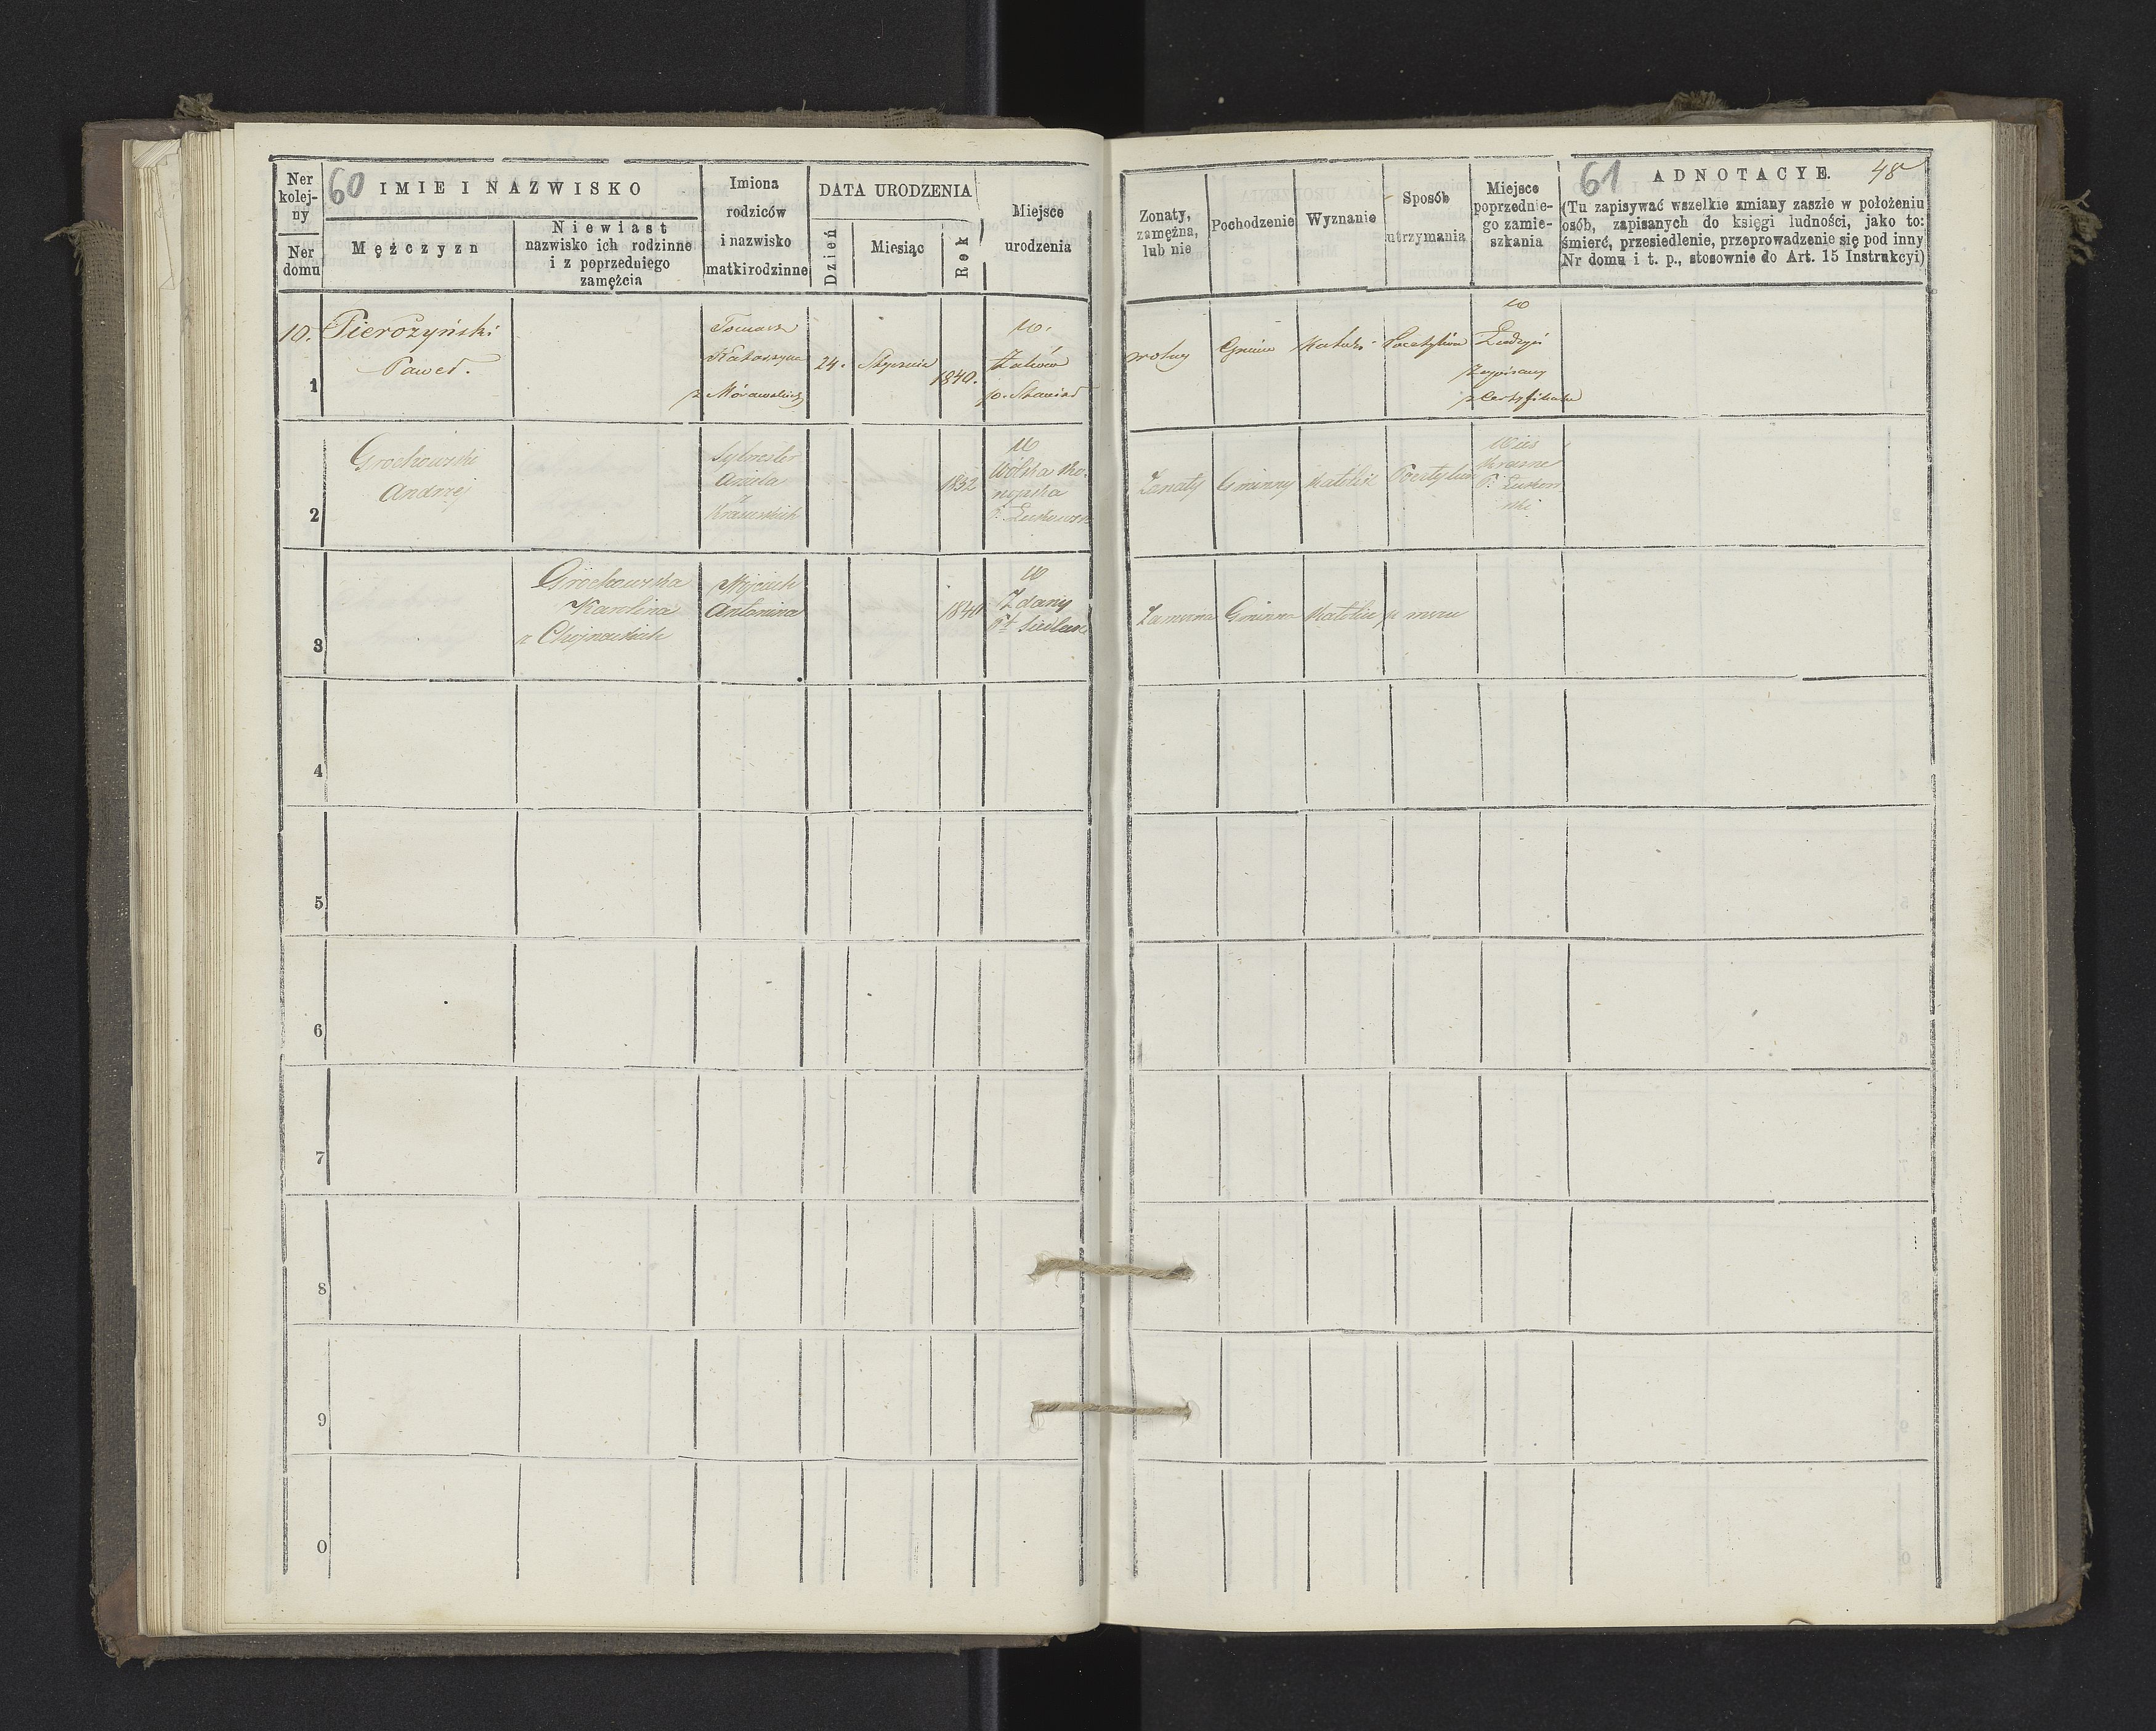 60
Ner kolej- ny
Ner domu
IMIE I NAZWISKO
Mężczyzn
Niewiast
nazwisko ich rodzinne
i z poprzedniego
zamężcia
Imiona
rodziców
i nazwisko
matki rodzinne
DATA URODZENIA
Dzień
Miesiąc
Rok
Miejsce
urodzenia
10.
1
Pierożyński
Paweł.
Tomasz
Katarzyna
z Morawskich
24.
Stycznia
1840.
w.
p. Stanisł
2
Grochowski
Andrzej
Sylwester
Aniela
z
Krasuskich
1832
w
Wólka
P. Łukowsk
3
Grochowska
Karolina
z Chojnackich
Wojciech
Antonina
1840
w
Zdany
Pt Siedlec
4
5
6
7
8
9
0
61
48
Zonaty,
zamężna,
lub nie
Pochodzenie
Wyznanie
Sposób
utrzymania
Miejsce
poprzednie-
go zamie-
szkania
ADNOTACYE.
(Tu zapisywać wszelkie zmiany zaszłe w położeniu
osób, zapisanych do księgi ludności, jako to:
śmierć, przesiedlenie, przeprowadzenie się pod inny
Nr domu i t. p., stosownie do Art. 15 Instrukcyi)
wolny
Gmin
Katol.
w
zapisany
z Certyfikatu
Zonaty
Gminny
Katolik
Wieś
Krasne
P. Łukow
ski
Zamężna
Gminna
Katolic
p mężu